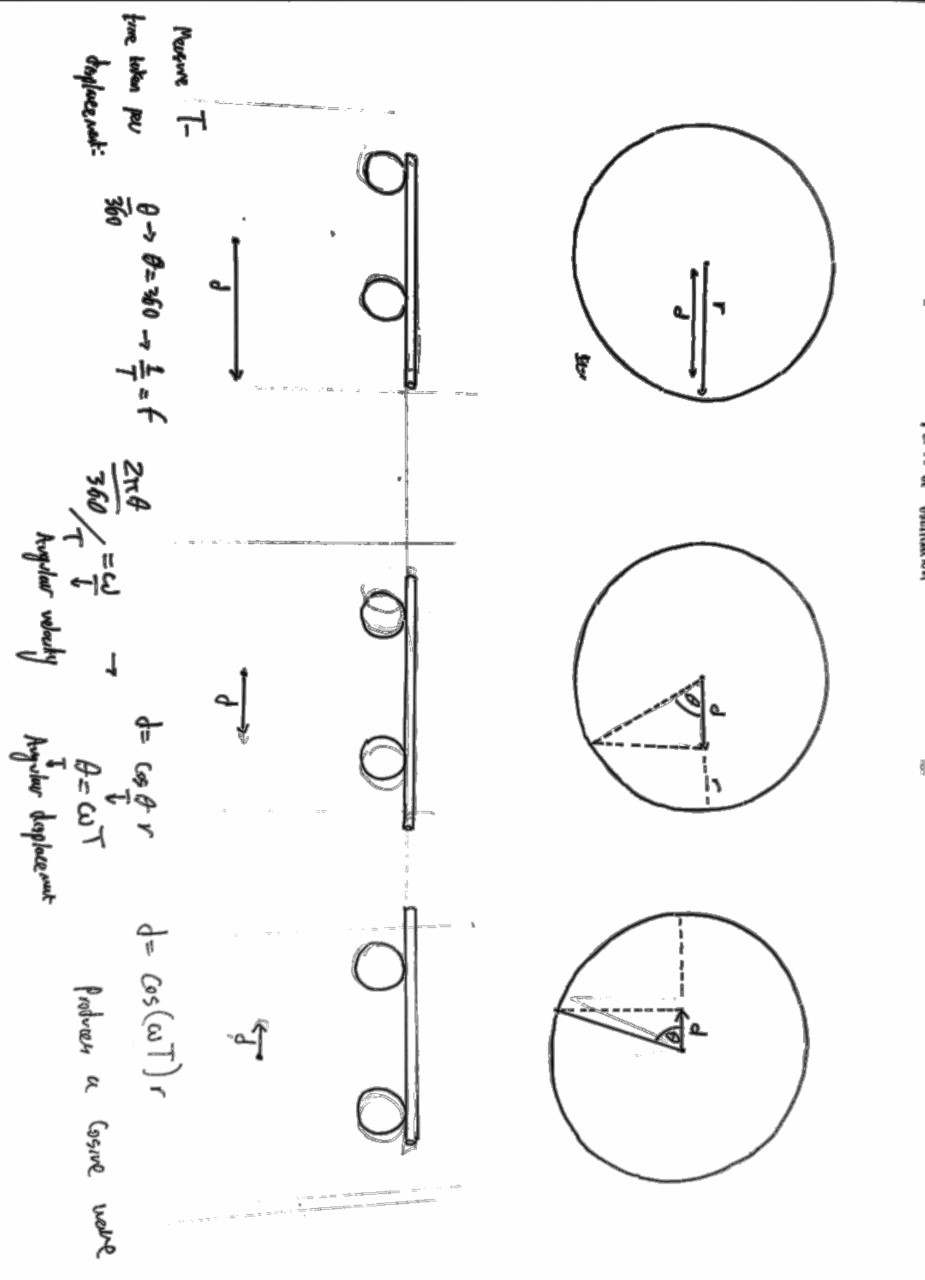 r
d
d
θ
r
d
θ
d
d
d
Measure T-
time taken per
displacement:
θ/360 → θ=360 → 1/T = f
2πθ/360 / T = ω
↓
Angular velocity
→
d= cosθ r
↓
θ = ωT
↓
Angular displacement
d= cos(ωT) r
Produces a Cosine wave